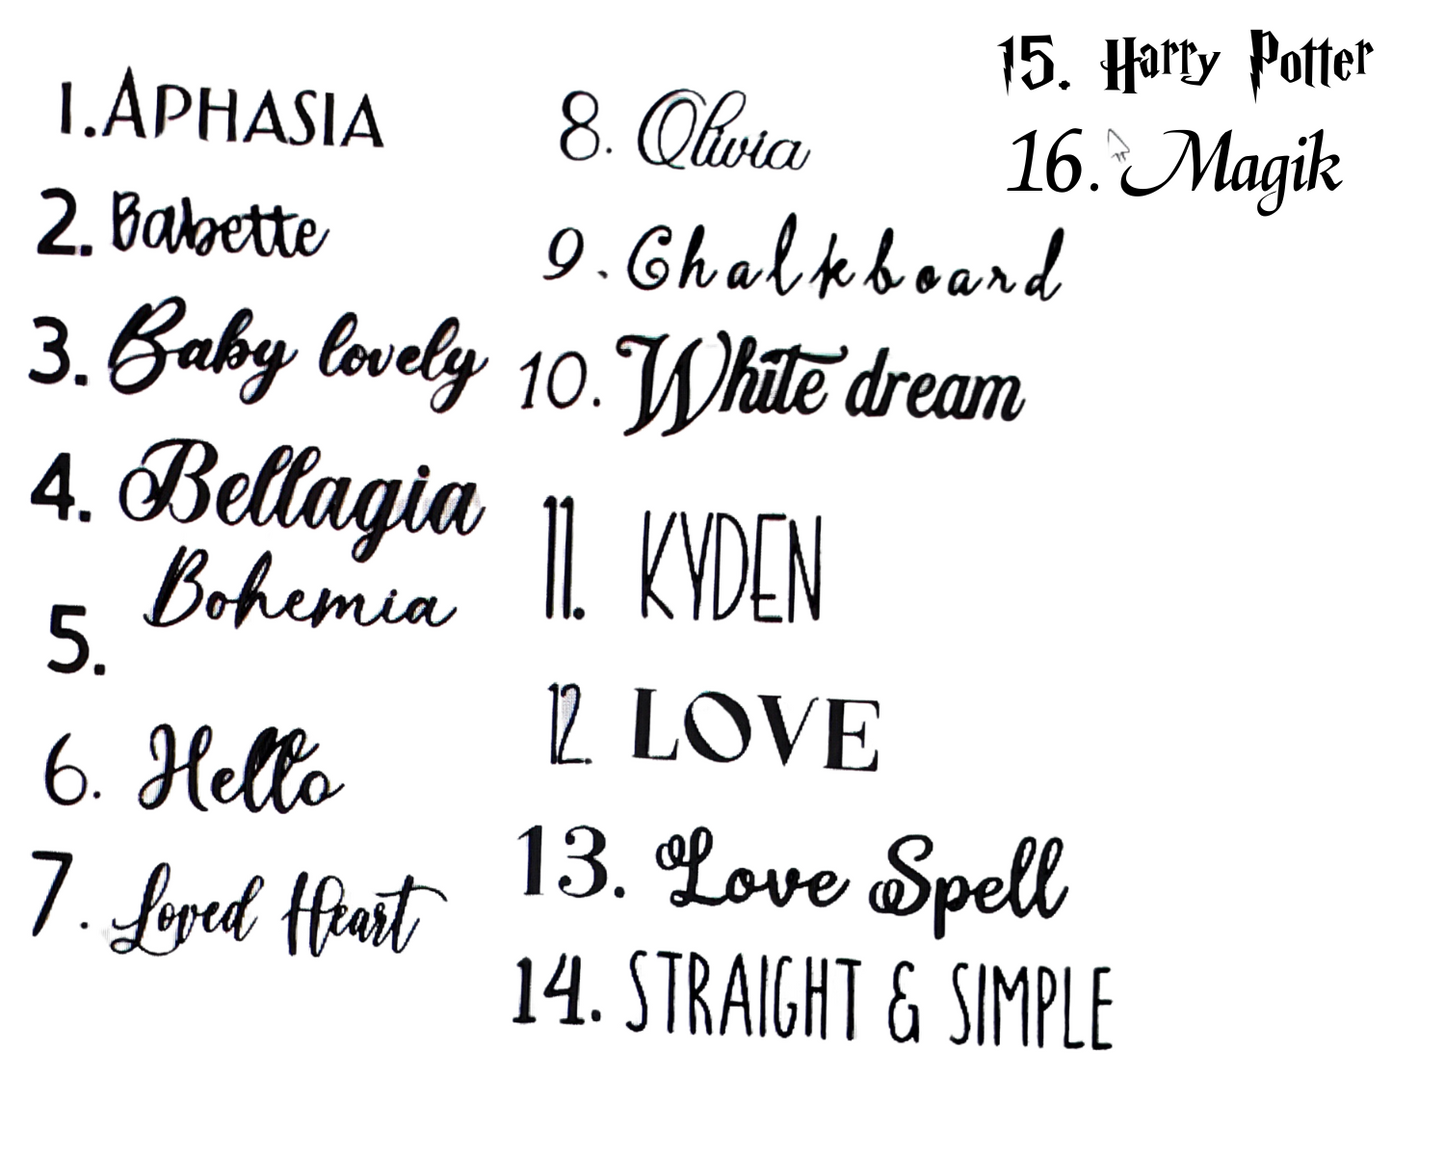 1. APHASIA
2. Babette
3. Baby lovely
4. Bellagia
5. Bohemia
6. Hello
7. Loved Heart
8. Olivia
9. Chalkboard
10. White dream
11. KYDEN
12. LOVE
13. Love Spell
14. STRAIGHT & SIMPLE
15. Harry Potter
16. Magik